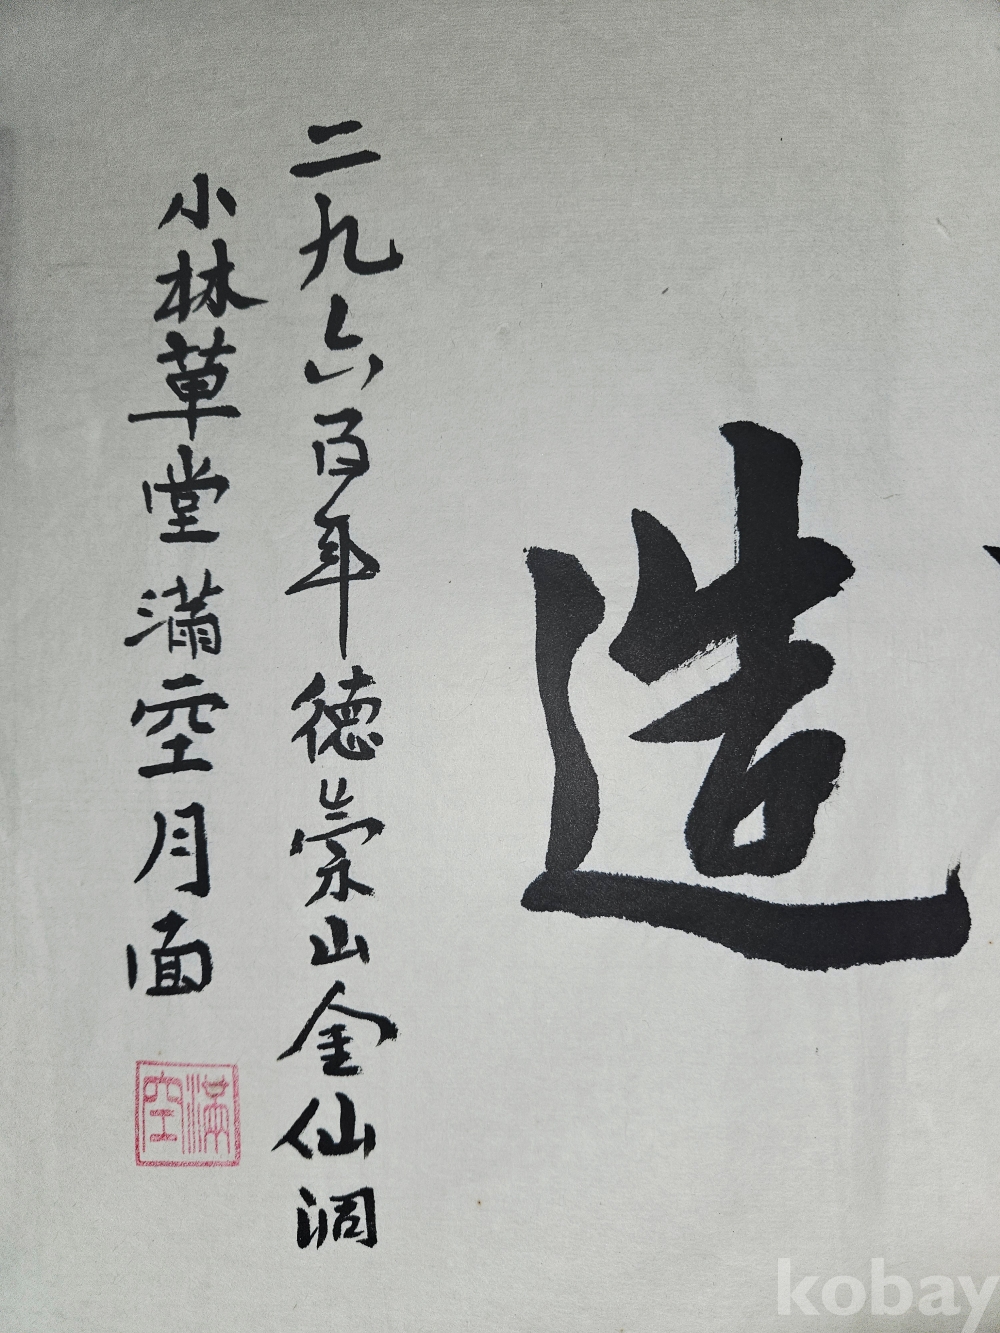 造
二九六百年德崇山金仙洞
小林草堂滿空月面
滿空
kobay